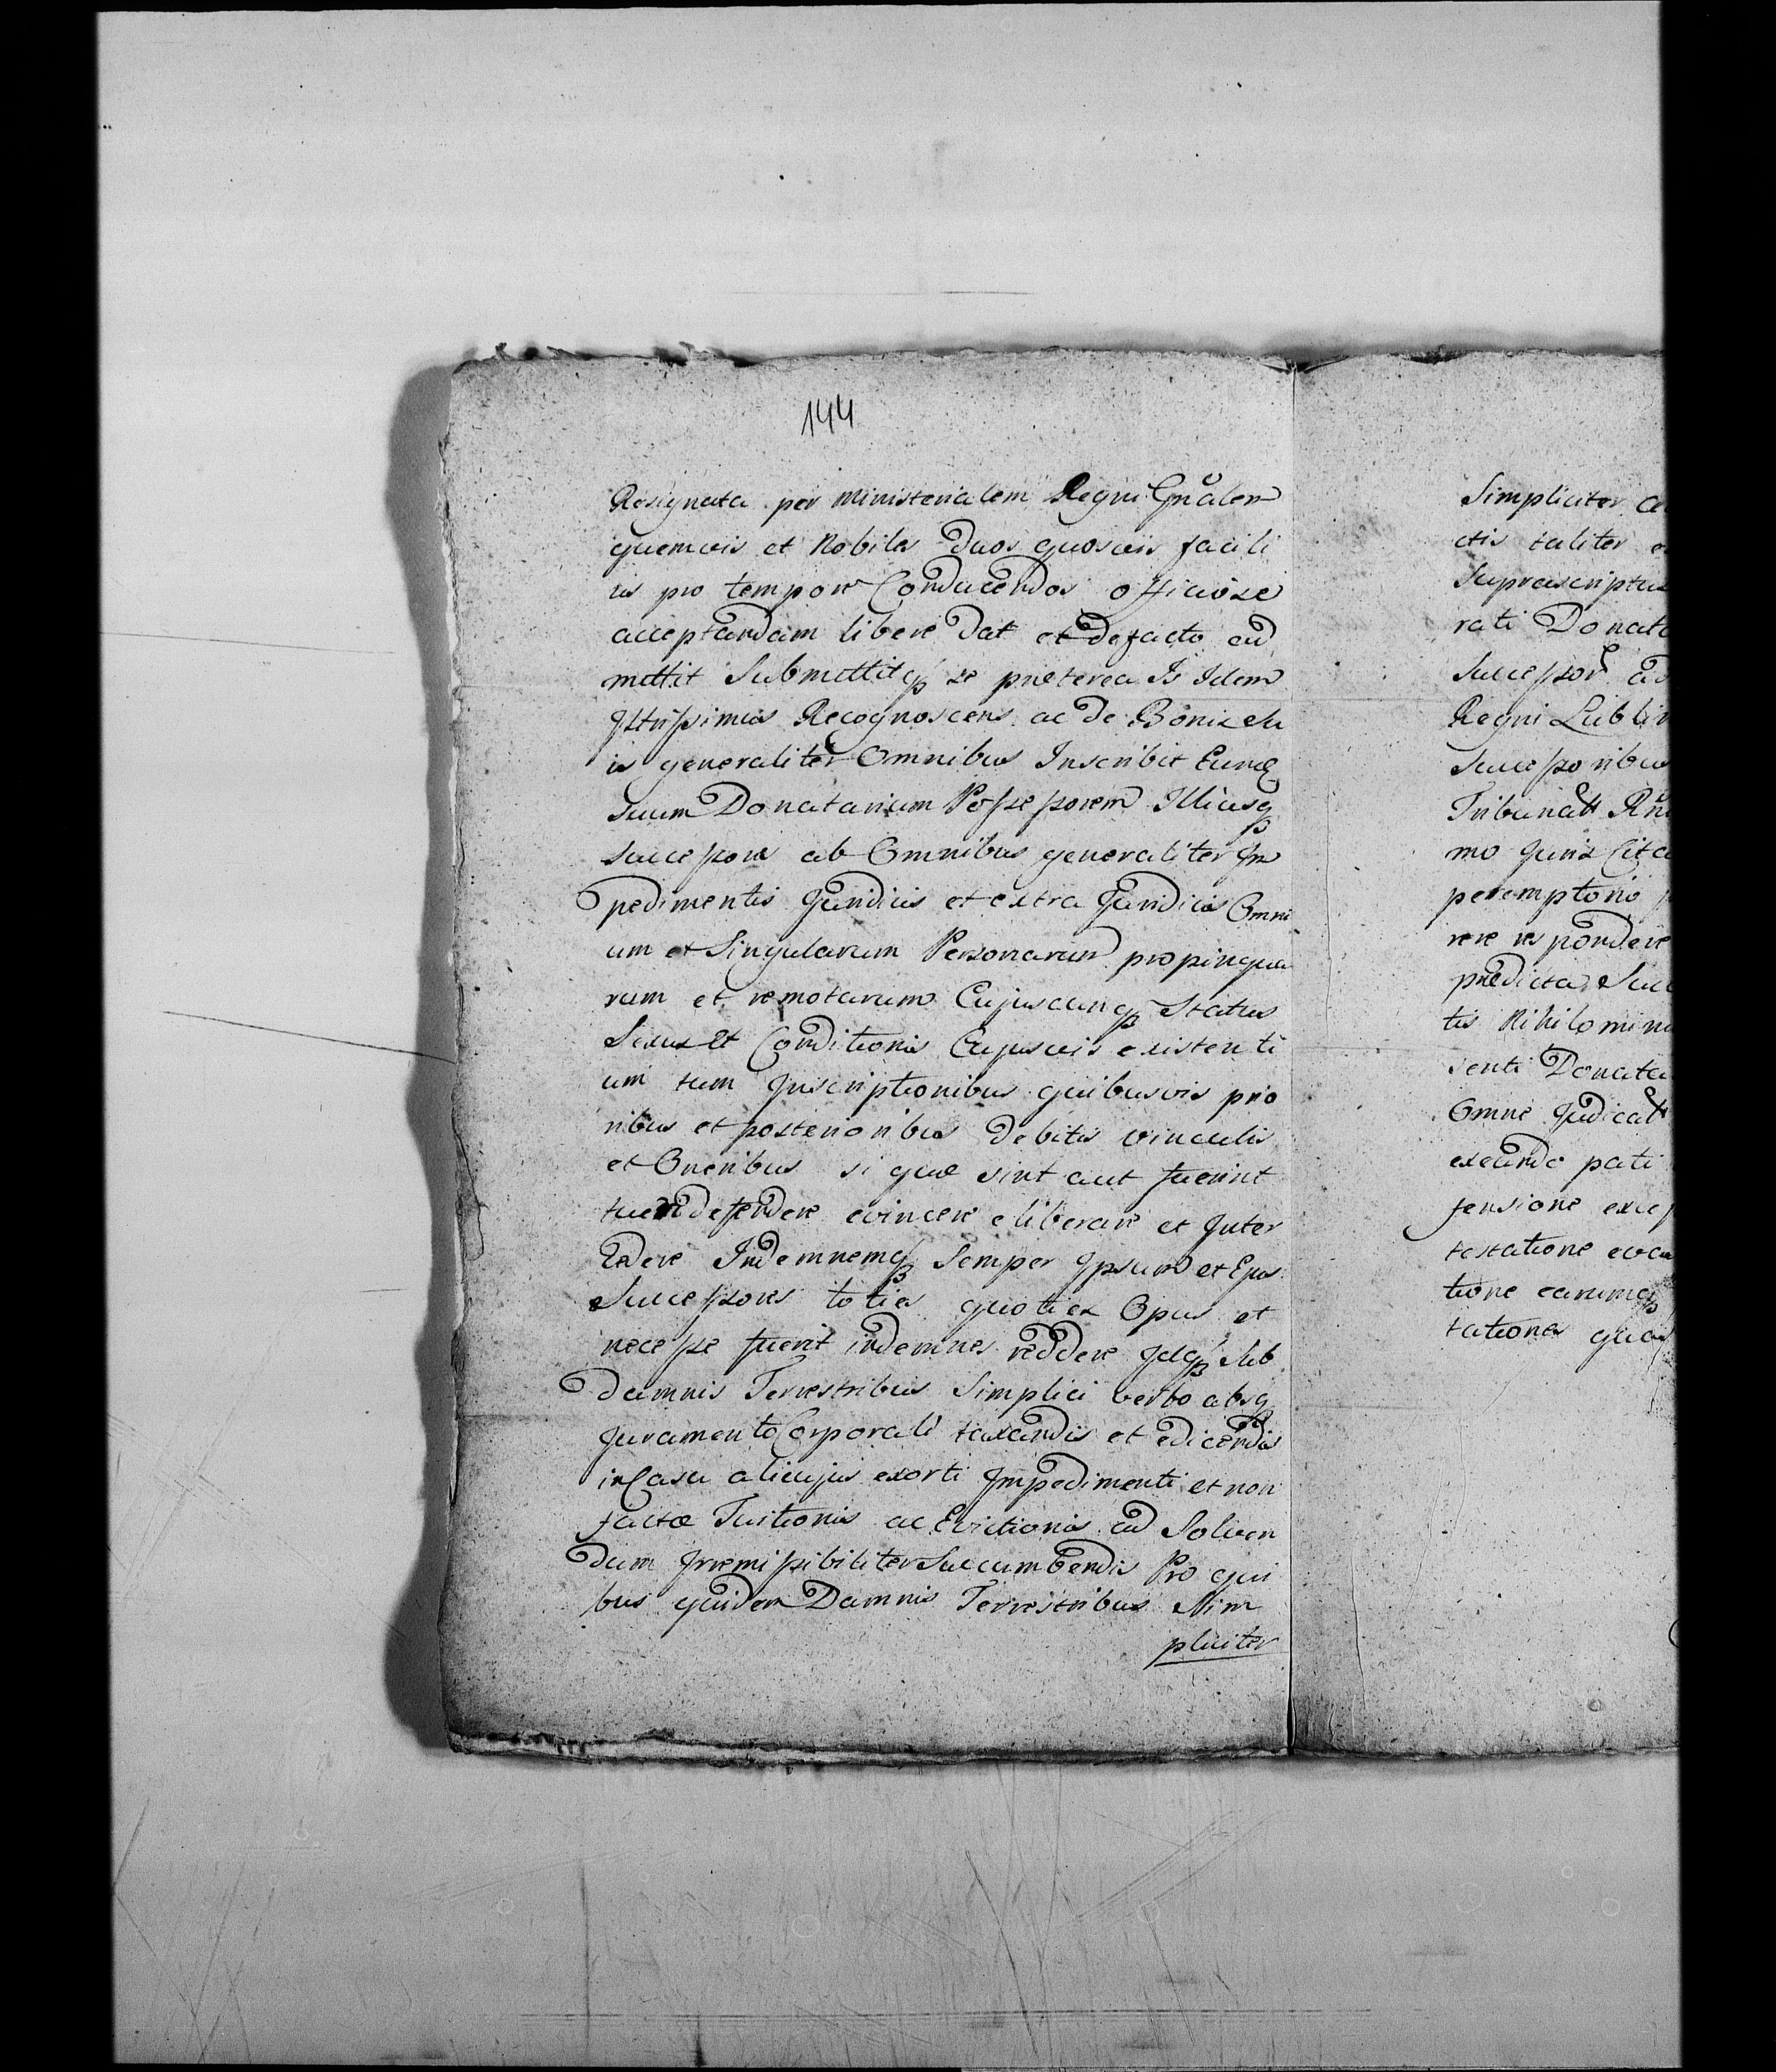 144
Resignata per Ministerialem Regni Gnalem
quemvis et Nobiles Duos quosvis facili
us pro tempore Conducendos officiose
acceptandam libere Dat et defacto ad
mittit Submittitq se preterea Is Idem
Illtrissimus Recognoscens ac De Bonis su
is generaliter Omnibus Inscribit Eundē
suum Donatarium Possessorem Illiusq
Successores ab Omnibus generaliter Im
pedimentis Juridicis et extra Juridicis Omni
um et Singularum Personarum propinqua
rum et remotarum Cujuscunq Status
Sexus et Conditionis Cujusvis existenti
um tum Inscriptionibus quibusvis prio
ribus et posterioribus debitis vinculis
et Oneribus si quæ sint aut fuerint
tueri defendere evincere eliberare et Inter
cedere Indemnemq Semper Ipsum et Ejus
Successores toties quoties Opus et
necesse fuerit indemnes reddere Idq Sub
damnis Terrestribus Simplici verbo absq
Juramento Corporali taxandis et edicendis
in Casu alicujus exorti Impedimenti et non
factæ Tuitionis ac Evictionis ad Solven
dum Irremissibiliter Succumbendis Pro qui
bus quidem Damnis Terrestribus Sim
pliciter
Simpliciter
ctis taliter
Suprascriptus
rati Donato
Successor ad
Regni Lublin
Successoribus
Tribunall Rni
mo Juris Cita
peremptorio
rere respondere
predicta Suc
tis Nihilominu
senti Donata
Omne Judicat
exeundo pati
fensione excep
testatione evca
tione earumq
tationes quas